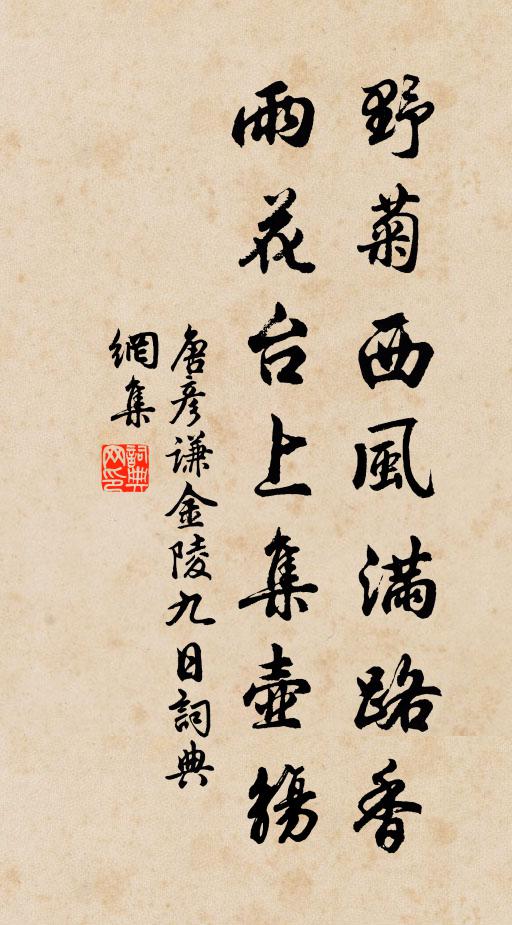 野菊西風滿路香
雨花台上集壺觴
唐彦謙金陵九日詞典
網集
詞典網印